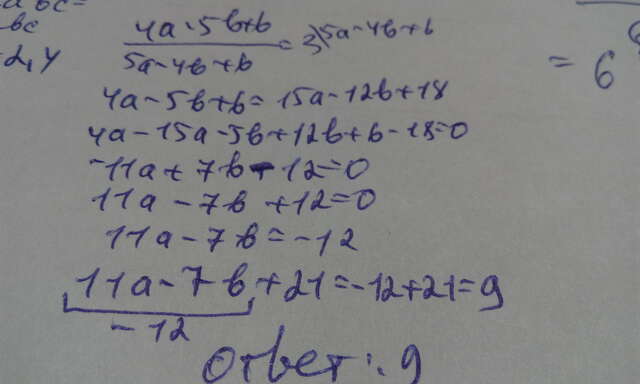 вс
4a-5b+b
5a-4b+b = 3\5a-4b+6
= 6
4a-5b+6=15a-12b+18
4a-15a-5b+12b+6-18=0
-11a+7b-12=0
11a-7b+12=0
11a-7b=-12
11a-7b+21=-12+21=9
-12
Ответ: 9